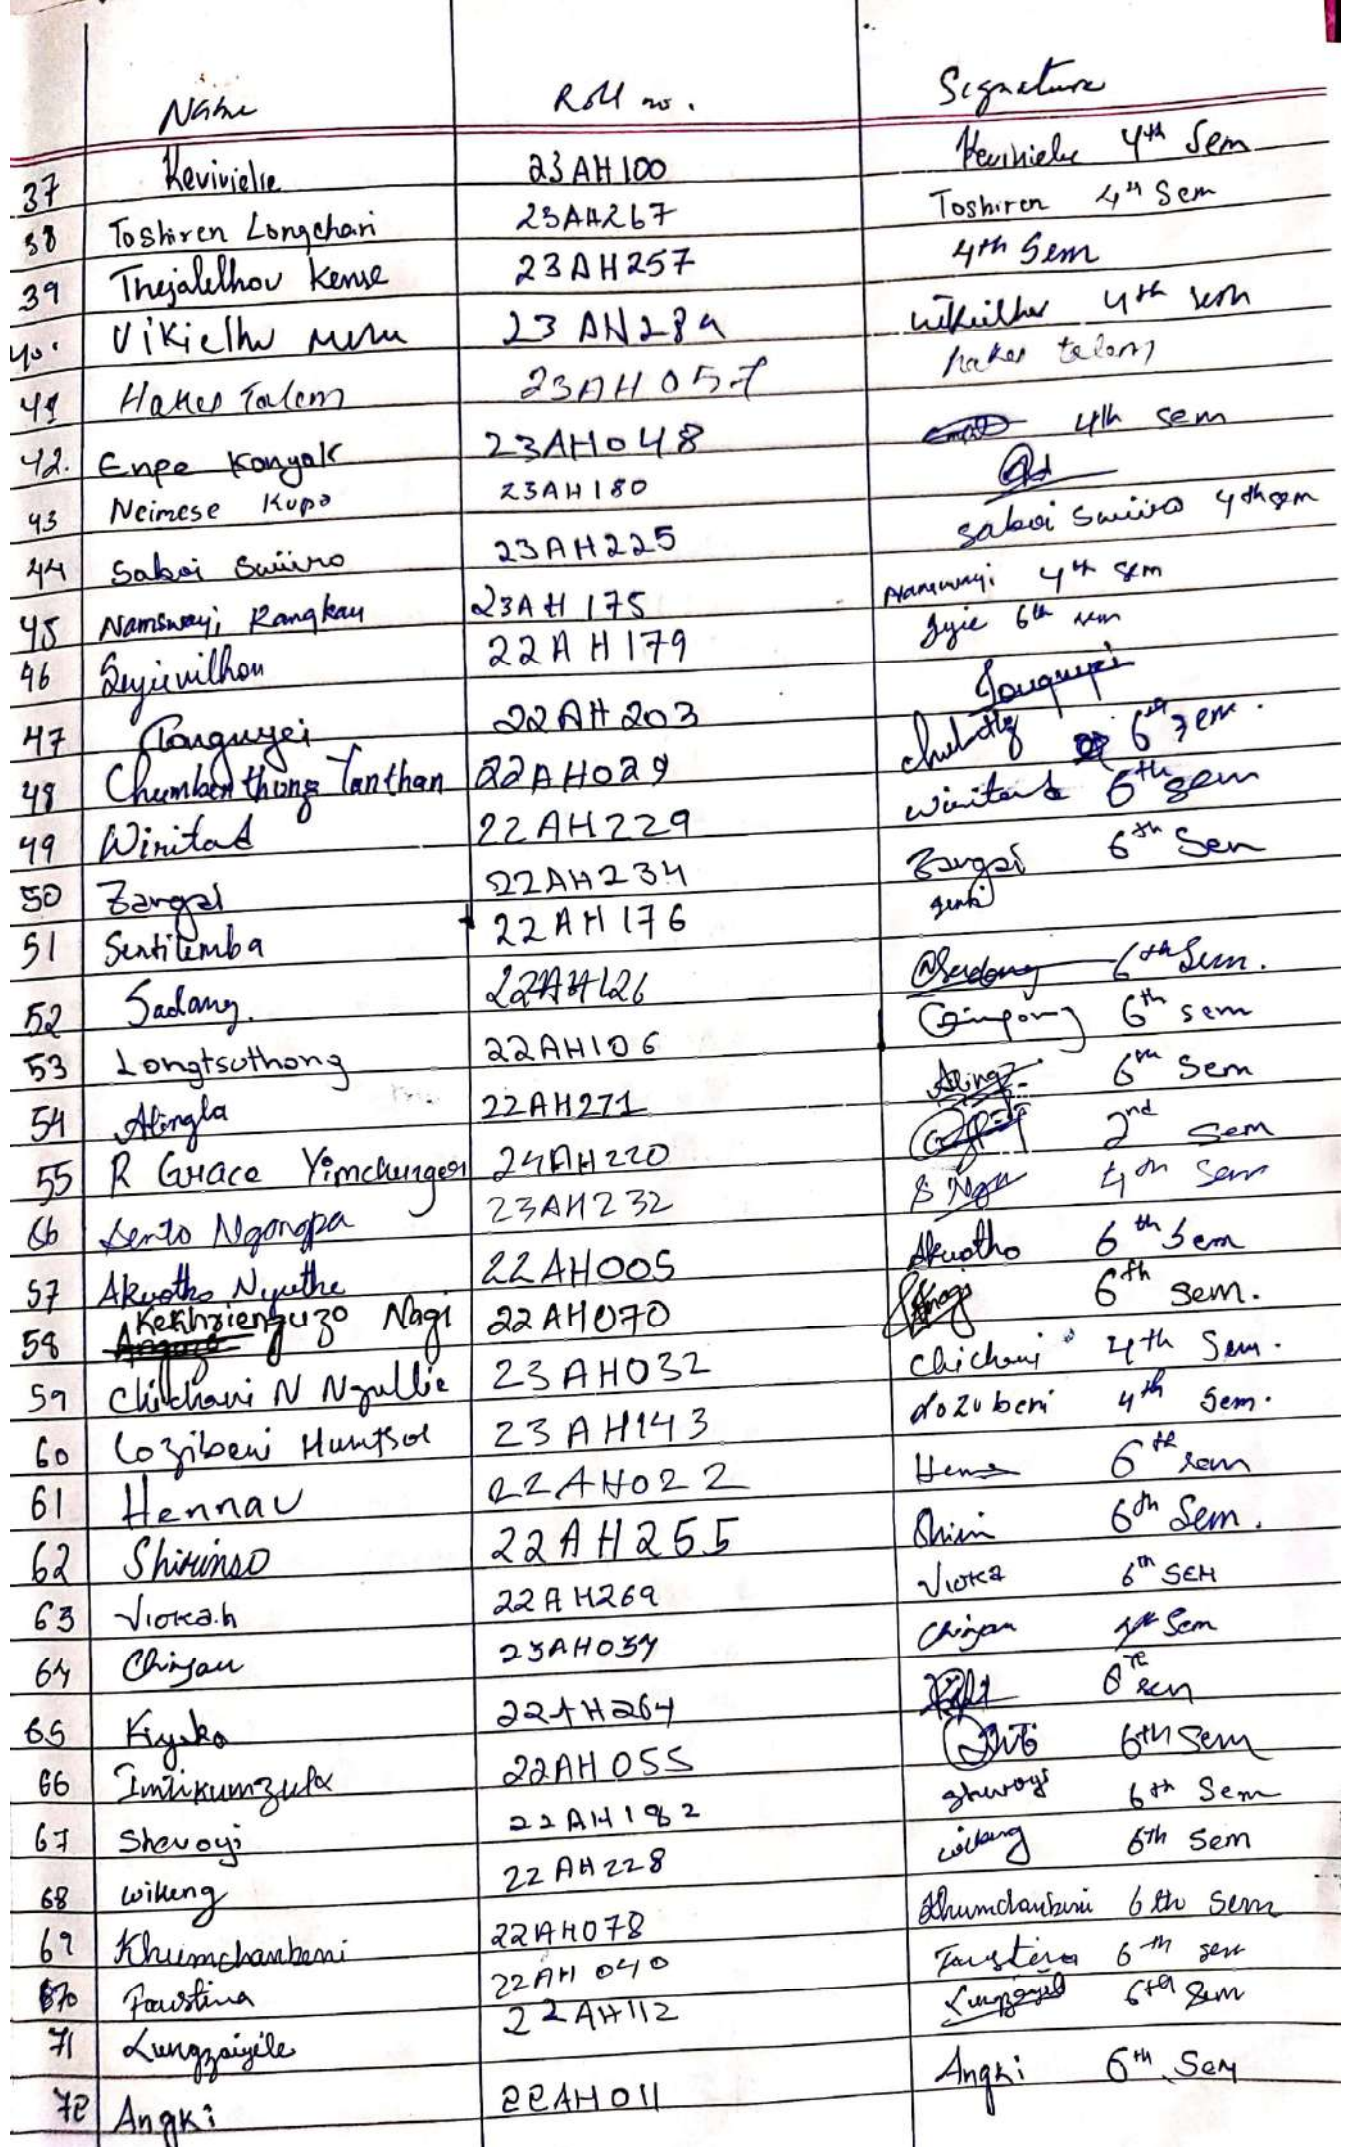 Name Roll no. Signature
37 Kevivielie 23AH100 Kevivielie 4th Sem
38 Toshiren Longchari 23AH267 Toshiren 4th Sem
39 Thejalelhou Kense 23AH257 4th Sem
40. Vikielhu 23AH289 4th sem
41 Hakes Talem 23AH057 hakes talem
42. Enpe Konyak 23AH048 4th sem
43 Neimese Kupa 23AH180
44 Saboi Swüiro 23AH225 saboi swüiro 4th sem
45 Namswayi Rangkau 23AH175 Namswayi 4th sem
46 22AH179 6th sem
47 Tongunyei 22AH203 Tongunyei
48 Chumbenthung Yanthan 22AH029 6th sem.
49 Winitad 22AH229 6th sem
50 Zangai 22AH234 Zangai 6th Sem
51 Sentilemba 22AH176
52 Sadang. 22AH126 Sadang 6th Sem.
53 Longtsothong 22AH106 6th sem
54 Alingla 22AH271 6th Sem
55 R Grace Yimchunger 24AH220 2nd Sem
56 Sento Ngongpa 23AH232 4th Sem
57 Akuotho Nyuthe 22AH005 Akuotho 6th Sem
58 Kekhrienguzo Nagi 22AH070 6th Sem.
59 Chichani N Ngullie 23AH032 Chichani 4th Sem.
60 Lozibeni Humtsoe 23AH143 Lozubeni 4th Sem.
61 Hennau 22AH022 6th sem
62 Shirinso 22AH255 Shirin 6th Sem.
63 Vioka.h 22AH269 Vioka 6th SEM
64 Chinjau 23AH034 Sem
65 Kiyeko 22AH264 6th sem
66 Imtikumzula 22AH055 6th Sem
67 Shevoyi 22AH182 6th Sem
68 wikeng 22AH228 wikeng 6th Sem
69 Khumchanbeni 22AH078 Khumchanbeni 6th Sem
70 Faustina 22AH040 Faustina 6th sem
71 Lungzaiyile 22AH112 6th Sem
72 Angki 22AH011 Angki 6th Sem